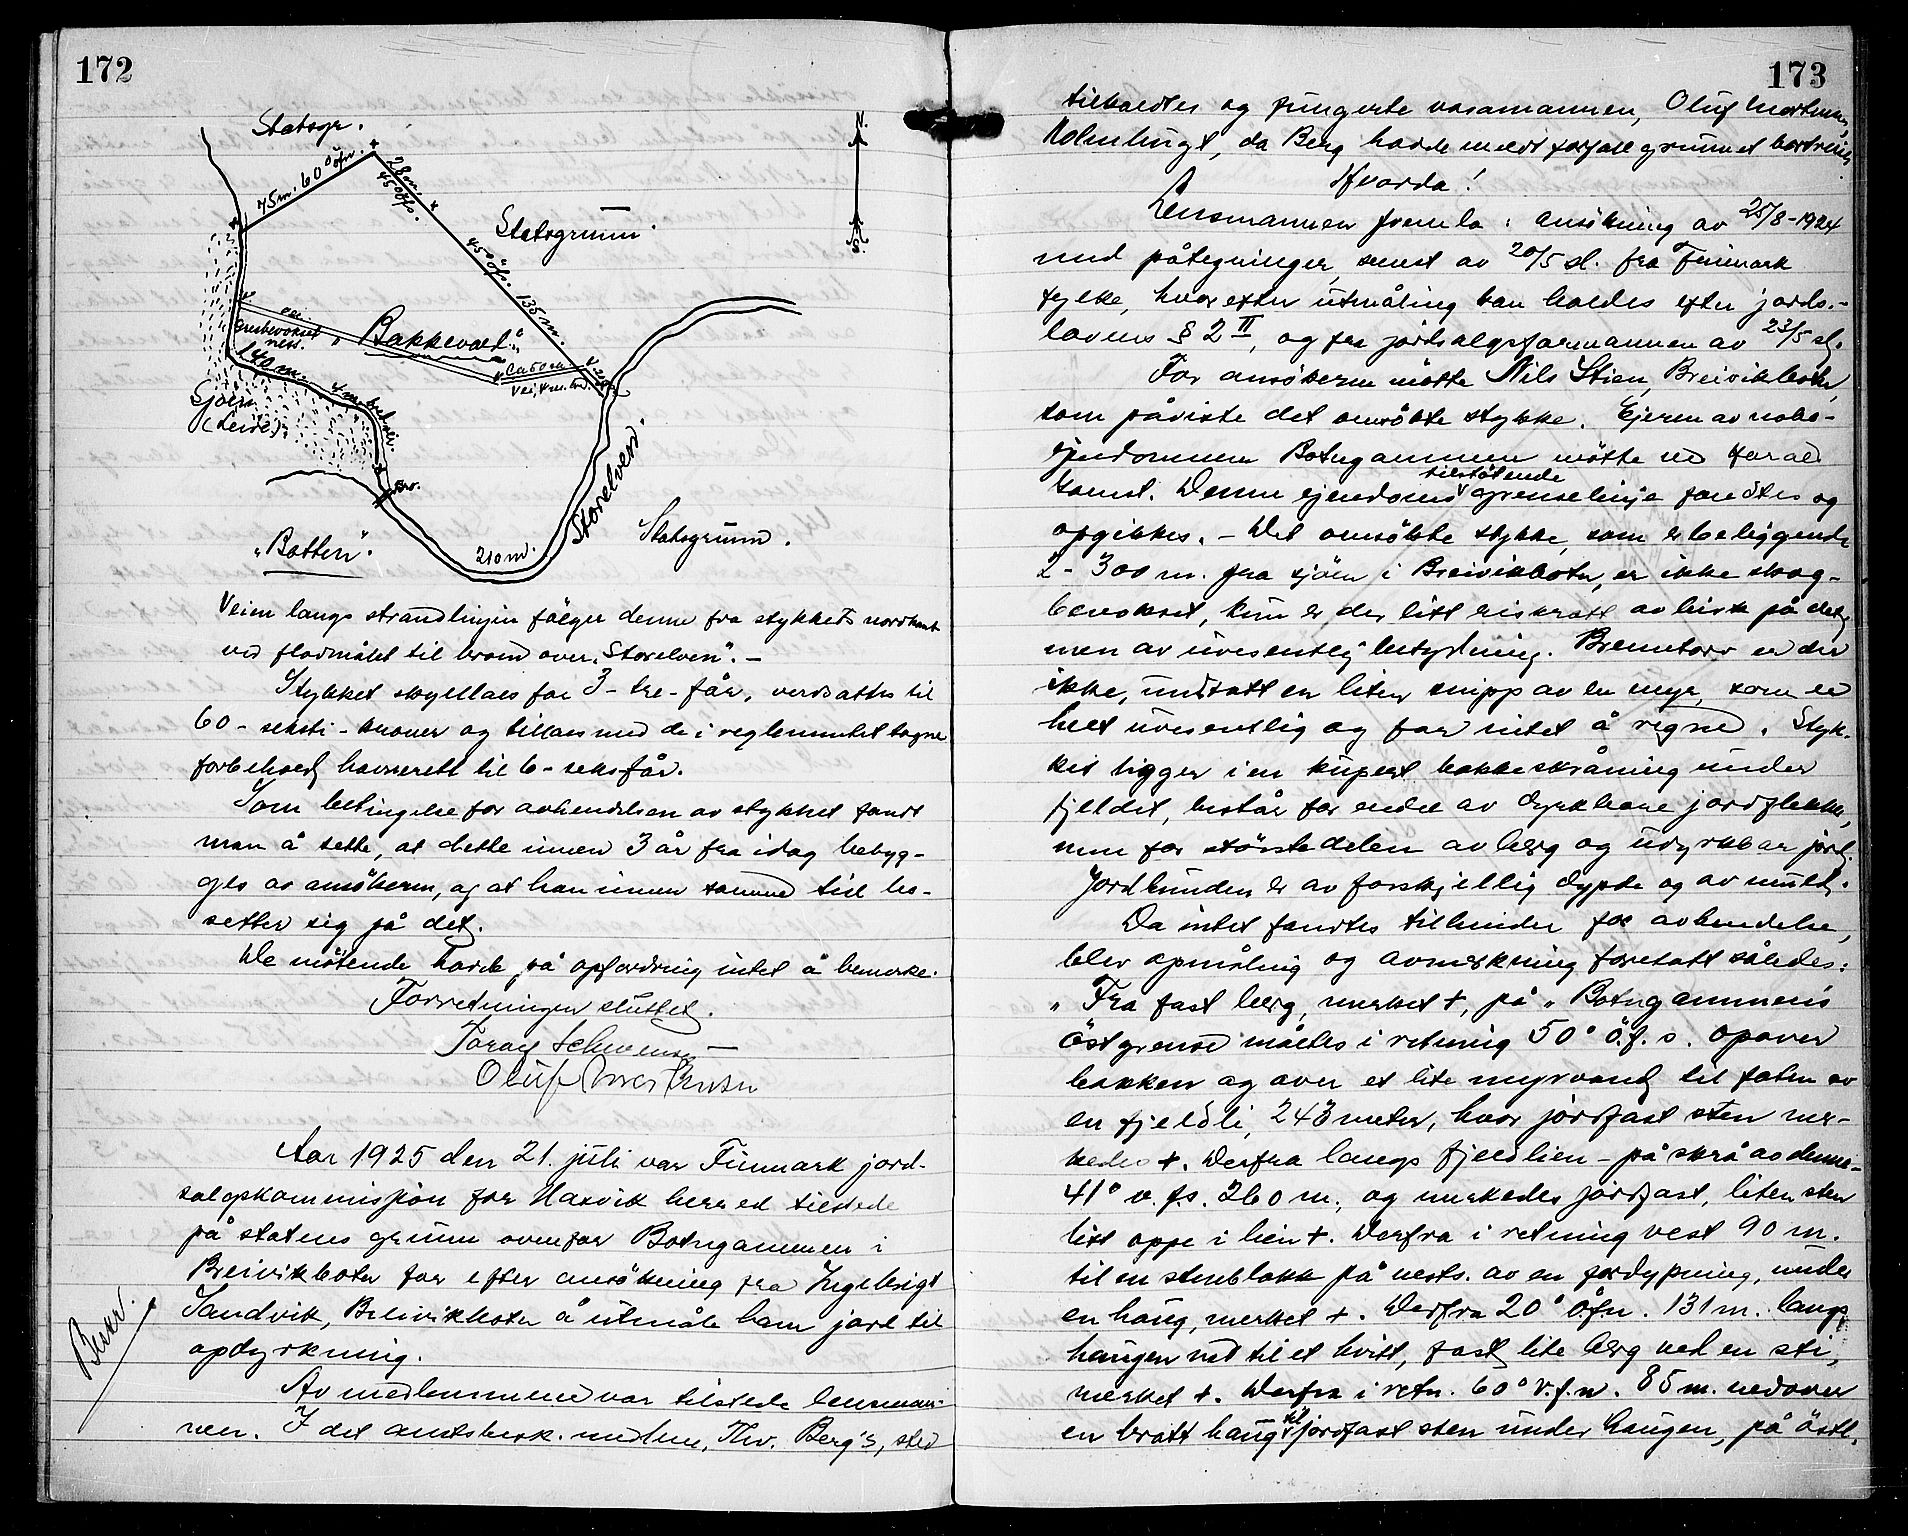 172
Statsgr.
N.
75 m. 60° öfn.
28 m.
45° öfs.
Statsgrunn.
45° öfs. 135 m.
S.
vei.
Gresbevokset
ness.
„Bakkevoll“
ca 50 m
Vei, 4 m. br.
140 m.
4 m. bred vei
Sjøen
(Leire)
Storelven.
Br.
„Botten“.
210 m.
Statsgrunn.
Veien langs strandlinjen fölger denne fra stykkets nordkant
ved flodmålet til broen over „Storelven“. —
Stykket skyldlaes for 3 - tre - får, verdsattes til
60 - seksti - kroner og tillaes med de i reglementet tagne
forbehold havnerett til 6 - seks får.
Som betingelse for avhendelsen av stykket fandt
man å sette, at dette innen 3 år fra idag bebyg-
ges av ansökeren, og at han innen samme tid bo-
setter sig på det.
De mötende havde på opfordring intet å bemerke.
Forretningen sluttet.
Oluf Mortensen
Aar 1925 den 21. juli var Finmark jord-
salgskommisjon for Hasvik herred tilstede
på statens grunn ovenfor Botngammen i
Breivikbotn for efter ansökning fra Ingebrigt
Sandvik, Breivikbotn å utmåle ham jord til
opdyrkning.
Beskr.
Av medlemmene var tilstede lensman-
nen. I det amtsbesk. medlem, Thv. Berg's, sted
173
tilkaldtes og fungerte varamannen, Oluf Mortensen
Holmbugt, da Berg hadde meldt forfall grunnet bortreise
Hvorda!
Lensmannen fremla: ansökning av 25/8-1924
med påtegninger, senest av 20/5 sl. fra Finmark
fylke, hvorefter utmåling kan holdes efter jords.-
lovens § 2 II, og fra jordsalgsformannen av 23/5 sl.
For ansökeren mötte Nils Stien, Breivikbotn,
som påviste det omsökte stykke. Ejeren av nabo-
ejendommen Botngammen mötte ved
komst. Denne ejendoms tilstötende grenselinje fandtes og
opgikkes. - Det omsökte stykke, som er beliggende
2 - 300 m. fra sjöen i Breivikbotn, er ikke skog-
bevokset, kun er der litt riskratt av birk på det,
men av uvesentlig betydning. Brenntorv er der
ikke, undtatt en liten snipp av en myr, som er
helt uvesentlig og for intet å regne. Styk-
ket ligger i en kupert bakkeskråning under
fjeldet, består for endel av dyrkbare jordflekker,
men for störstedelen av berg og udyrkbar jord.
Jordbunden er av forskjellig dypde og av muld.
Da intet fandtes til hinder for avhendelse,
blev opmåling og avmerkning foretatt således:
„Fra fast berg, merket +, på „Botngammens
östgrense måltes i retning 50° ö.f.s. opover
bakken og over et lite myrvand til foten av
en fjeldli, 243 meter, hvor jordfast sten mer-
kedes +. Derfra langs fjeldlien - på skrå av denne -
41° v.f.s. 260 m., og merkedes jordfast, liten sten
litt oppe i lien +. Derfra i retning vest 90 m.
til en stenblokk på vests. av en fordypning, under
en haug, merket +. Derfra 20° ö.f.n. 131 m. langs
haugen ned til et hvitt, fast lite berg ved en sti,
merket +. Derfra i retn. 60° v.f.n. 85 m. nedover
en bratt haug til jordfast sten under haugen, på östl.